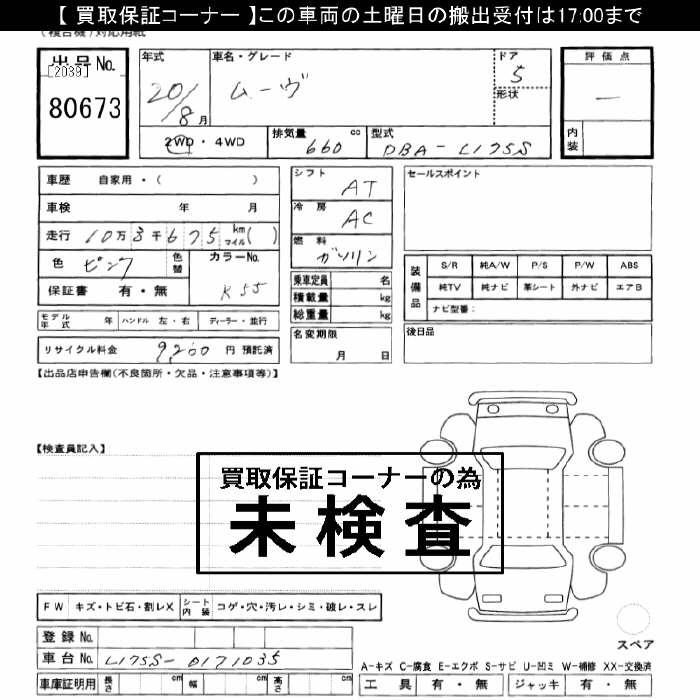 【 買取保証コーナー 】この車両の土曜日の搬出受付は17:00まで
(複合機)対応用紙
出品No.
[2039]
80673
年式
20/8月
車名・グレード
ムーヴ
ドア
5
形状
評価点
—
内装
2WD・4WD
排気量
660 cc
型式
DBA-L175S
車歴 自家用・( )
車検 年 月
走行 10万3千675 km マイル( )
色 ピンク 色替
カラーNo. K55
保証書 有・無
シフト AT
冷房 AC
燃料 ガソリン
乗車定員 名
積載量 kg
総重量 kg
セールスポイント
装備品
S/R 純A/W P/S P/W ABS
純TV 純ナビ 革シート 外ナビ エアB
ナビ型番:
モデル年式 年 ハンドル 左・右 ディーラー・並行
名変期限
月 日
後日品
リサイクル料金 9,200 円 預託済
【出品店申告欄(不良箇所・欠品・注意事項等)】
【検査員記入】
買取保証コーナーの為
未検査
FW キズ・トビ石・割レX シート内装 コゲ・穴・汚レ・シミ・破レ・スレ
登録No.
車台No. L175S-0171035
車庫証明用 長さ cm 幅 cm 高さ cm
スペア
A-キズ C-腐食 E-エクボ S-サビ U-凹ミ W-補修 XX-交換済
工具 有・無 ジャッキ 有・無